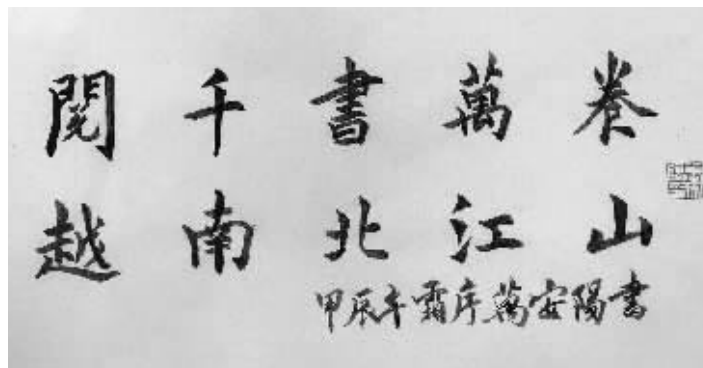 閱千書萬卷
越南北江山
甲辰年霜序萬安陽書